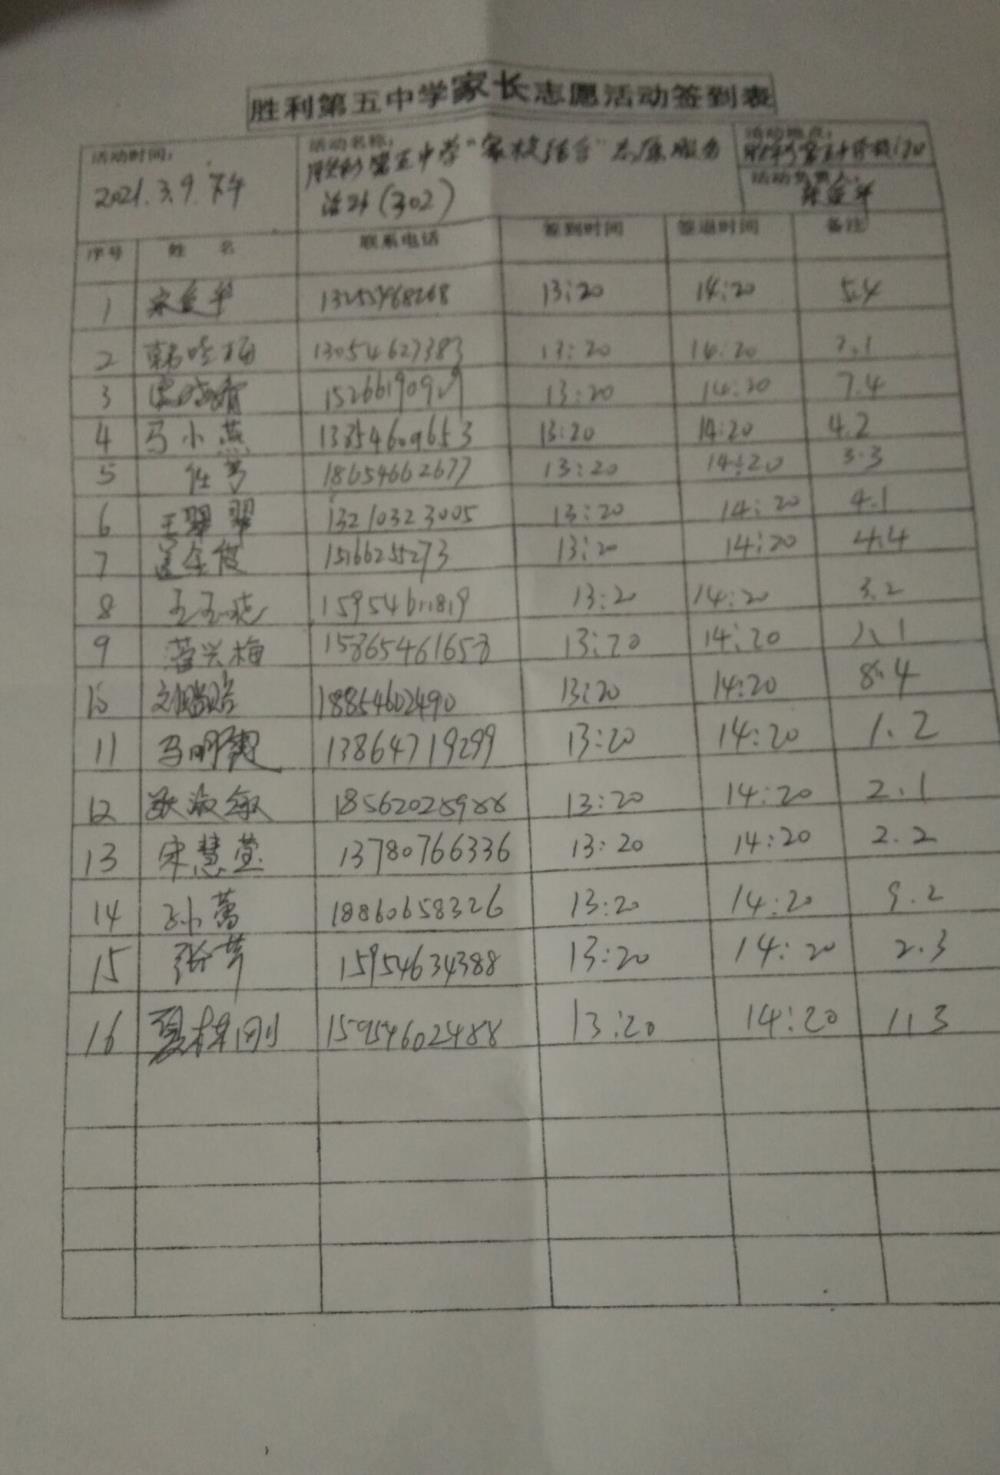 胜利第五中学家长志愿活动签到表
活动时间： 2021.3.9.下午
活动名称： 胜利第五中学“家校结合”志愿服务
活动(302)
活动地点：
活动负责人：
序号 姓 名 联系电话 签到时间 签退时间 备注
1 13:20 14:20 5.4
2 13054627383 13:20 14:20 2.1
3 13:20 14:20 7.4
4 马小燕 13854609653 13:20 14:20 4.2
5 18654662677 13:20 14:20 3.3
6 王翠翠 13210323005 13:20 14:20 4.1
7 1516625273 13:20 14:20 4.4
8 15954611819 13:20 14:20 3.2
9 兴梅 15865461658 13:20 14:20
10 18854602490 13:20 14:20 8.4
11 马明 13864719299 13:20 14:20 1.2
12 淑敏 13:20 14:20 2.1
13 宋慧莹 13780766336 13:20 14:20 2.2
14 孙小蕾 18860658326 13:20 14:20 9.2
15 张芹 15954634388 13:20 14:20 2.3
16 夏林刚 15954602488 13:20 14:20 1.3